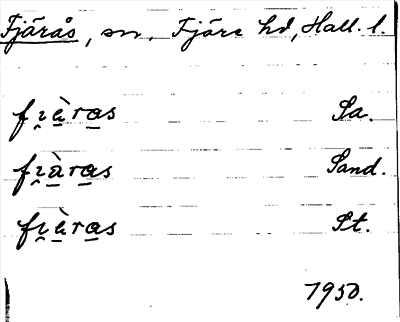 Fjärås, sn. Fjäre hd, Hall. l.
fı̯ä̀ras Sa.
fı̯ä̀ras Sand.
fı̯ä̀ras St.
1950.